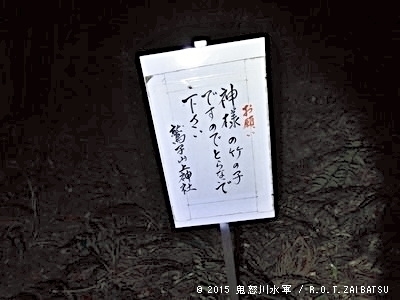 お願い
神様の竹の子
ですのでとらないで
下さい
鷲子山上神社
© 2015 鬼怒川水軍 / R.O.T.ZAIBATSU